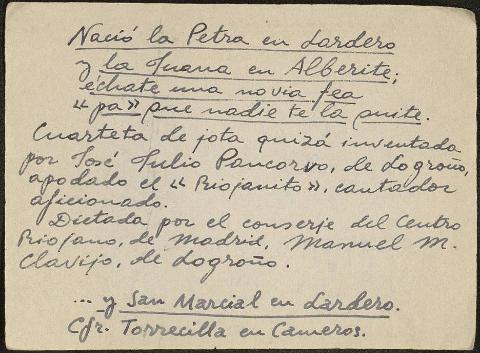 Nació la Petra en Lardero
y la Juana en Alberite;
échate una novia fea
"pa" que nadie te la quite.
Cuarteta de jota quizá inventada
por José Julio Pancorvo, de Logroño,
apodado el "Riojanito", cantador
aficionado.
Dictada por el conserje del Centro
Riojano, de Madrid, Manuel M.
Clavijo, de Logroño.
... y San Marcial en Lardero.
Cfr. Torrecilla en Cameros.